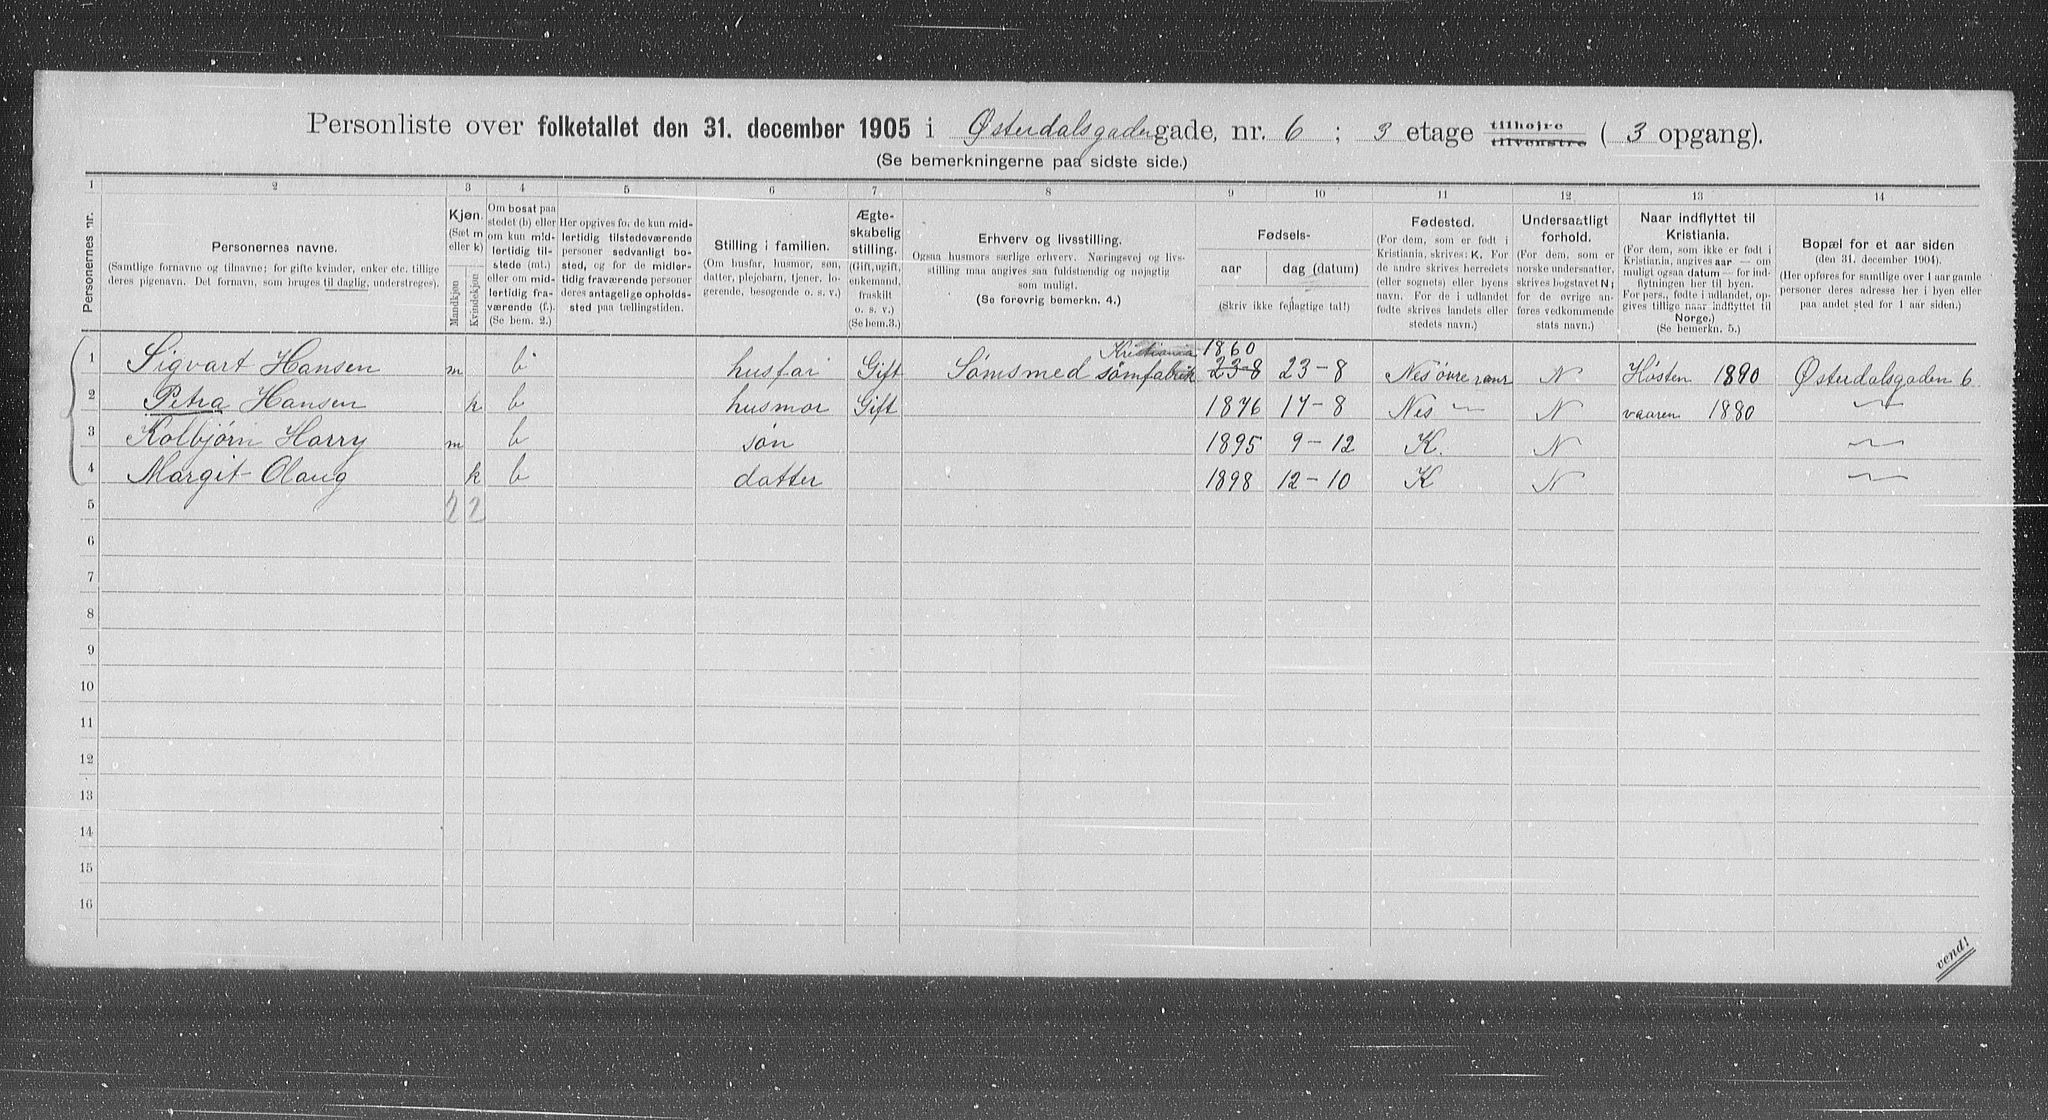 Personliste over folketallet den 31. december 1905 i Østerdalsgadengade, nr. 6 ; 3 etage tilhøjre tilvenstre ( 3 opgang).
(Se bemerkningerne paa sidste side.)
1 2 3 4 5 6 7 8 9 10 11 12 13 14
Personernes nr.
Personernes navne.
(Samtlige fornavne og tilnavne; for gifte kvinder, enker etc. tillige
deres pigenavn. Det fornavn, som bruges til daglig, understreges).
Kjøn.
(Sæt m
eller k)
Mandkjøn
Kvindekjøn
Om bosat paa
stedet (b) eller
om kun mid-
lertidig til-
stede (mt.)
eller om mid-
lertidig fra-
værende (f.).
(Se bem. 2.)
Her opgives for de kun mid-
lertidig tilstedeværende
personer sedvanligt bo-
sted, og for de midler-
tidig fraværende personer
deres antagelige opholds-
sted paa tællingstiden.
Stilling i familien.
(Om husfar, husmor, søn,
datter, plejebarn, tjener, lo-
gerende, besøgende o. s. v.)
Ægte-
skabelig
stilling.
(Gift, ugift,
enkemand,
fraskilt
o. s. v.)
(Se bem.3.)
Erhverv og livsstilling.
Ogsaa husmors særlige erhverv. Næringsvej og livs-
stilling maa angives saa fuldstændig og nøjagtig
som muligt.
(Se forøvrig bemerkn. 4.)
Fødsels-
aar
dag (datum)
(Skriv ikke fejlagtige tal!)
Fødested.
(For dem, som er født i
Kristiania, skrives: K. For
de andre skrives herredets
(eller sognets) eller byens
navn. For de i udlandet
fødte skrives landets eller
stedets navn.)
Undersaatligt
forhold.
(For dem, som er
norske undersaatter,
skrives bogstavet N;
for de øvrige an-
føres vedkommende
stats navn.)
Naar indflyttet til
Kristiania.
(For dem, som ikke er født i
Kristiania, angives aar — om
muligt ogsaa datum — for ind-
flytningen her til byen.
For pers., fødte i udlandet, op-
gives tillige naar indflyttet til
Norge.)
(Se bemerkn. 5.)
Bopæl for et aar siden
(den 31. december 1904).
(Her opføres for samtlige over 1 aar gamle
personer deres adresse her i byen eller
paa andet sted for 1 aar siden.)
Kristiania 1860
1 Sigvart Hansen m b husfar Gift Sømsmed sømfabrik 23-8 23-8 Nes øvre romr N Høsten 1890 Østerdalsgaden 6
2 Petra Hansen k b husmor Gift 1876 17-8 Nes — N vaaren 1880 —
3 Kolbjørn Harry m b søn 1895 9-12 K. N —
4 Margit Olaug k b datter 1898 12-10 K N —
5 2 2
6
7
8
9
10
11
12
13
14
15
16
vend!